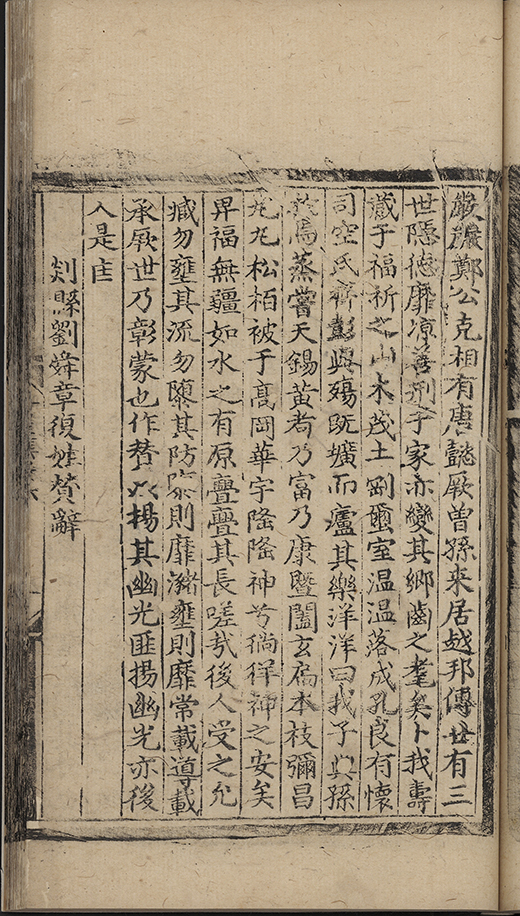 嚴嚴鄭公克相有唐懿厥曾孫来居越邦傳世有三
世隱德靡凉善刑于家亦變其鄉齒之耄矣卜我壽
藏于福祈之山木茂土剛爾室温温落成孔良有懷
司空氏齊彭與殤既壙而廬其樂洋洋曰我子與孫
焉蒸嘗天錫黄耇乃富乃康暨闔玄扃本枝彌昌
丸丸松栢被于髙岡華宇隆隆神兮徜徉神之安矣
畀福無疆如水之有原亹亹其長嗟㢤後人受之允
臧勿壅其流勿隳其防隳則靡瀦壅則靡常載導載
承厥世乃彰蒙也作賛以揚其幽光匪揚幽光亦後
人是匡
剡縣劉舜章復雄賛辭